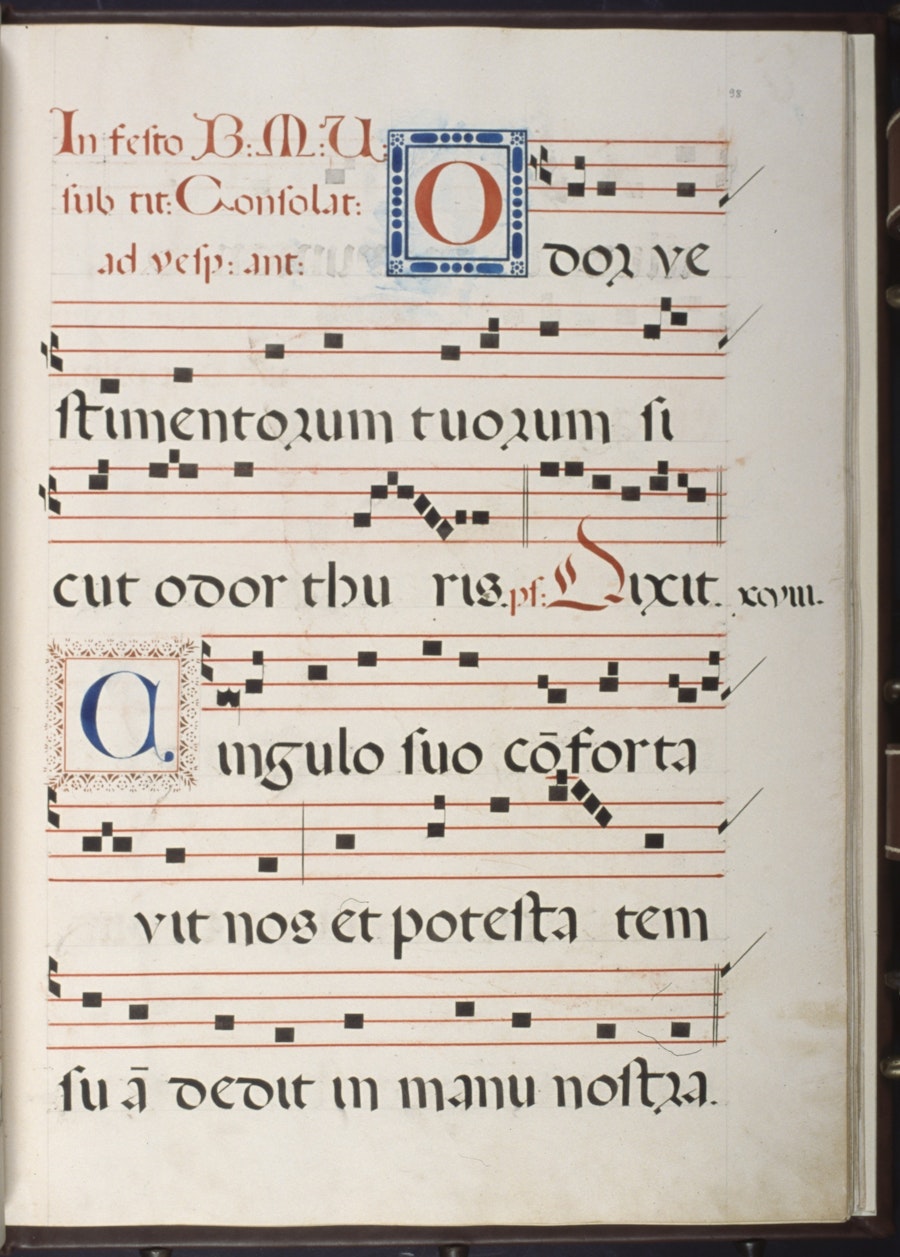 98
In festo B: M: V:
sub tit: Consolat:
ad vesp: ant:
ODOR VE
stimentorum tuorum si
cut odor thu ris. ps: Dixit. xcviii.
Cingulo suo cōforta
vit nos et potesta tem
su ā dedit in manu nostra.